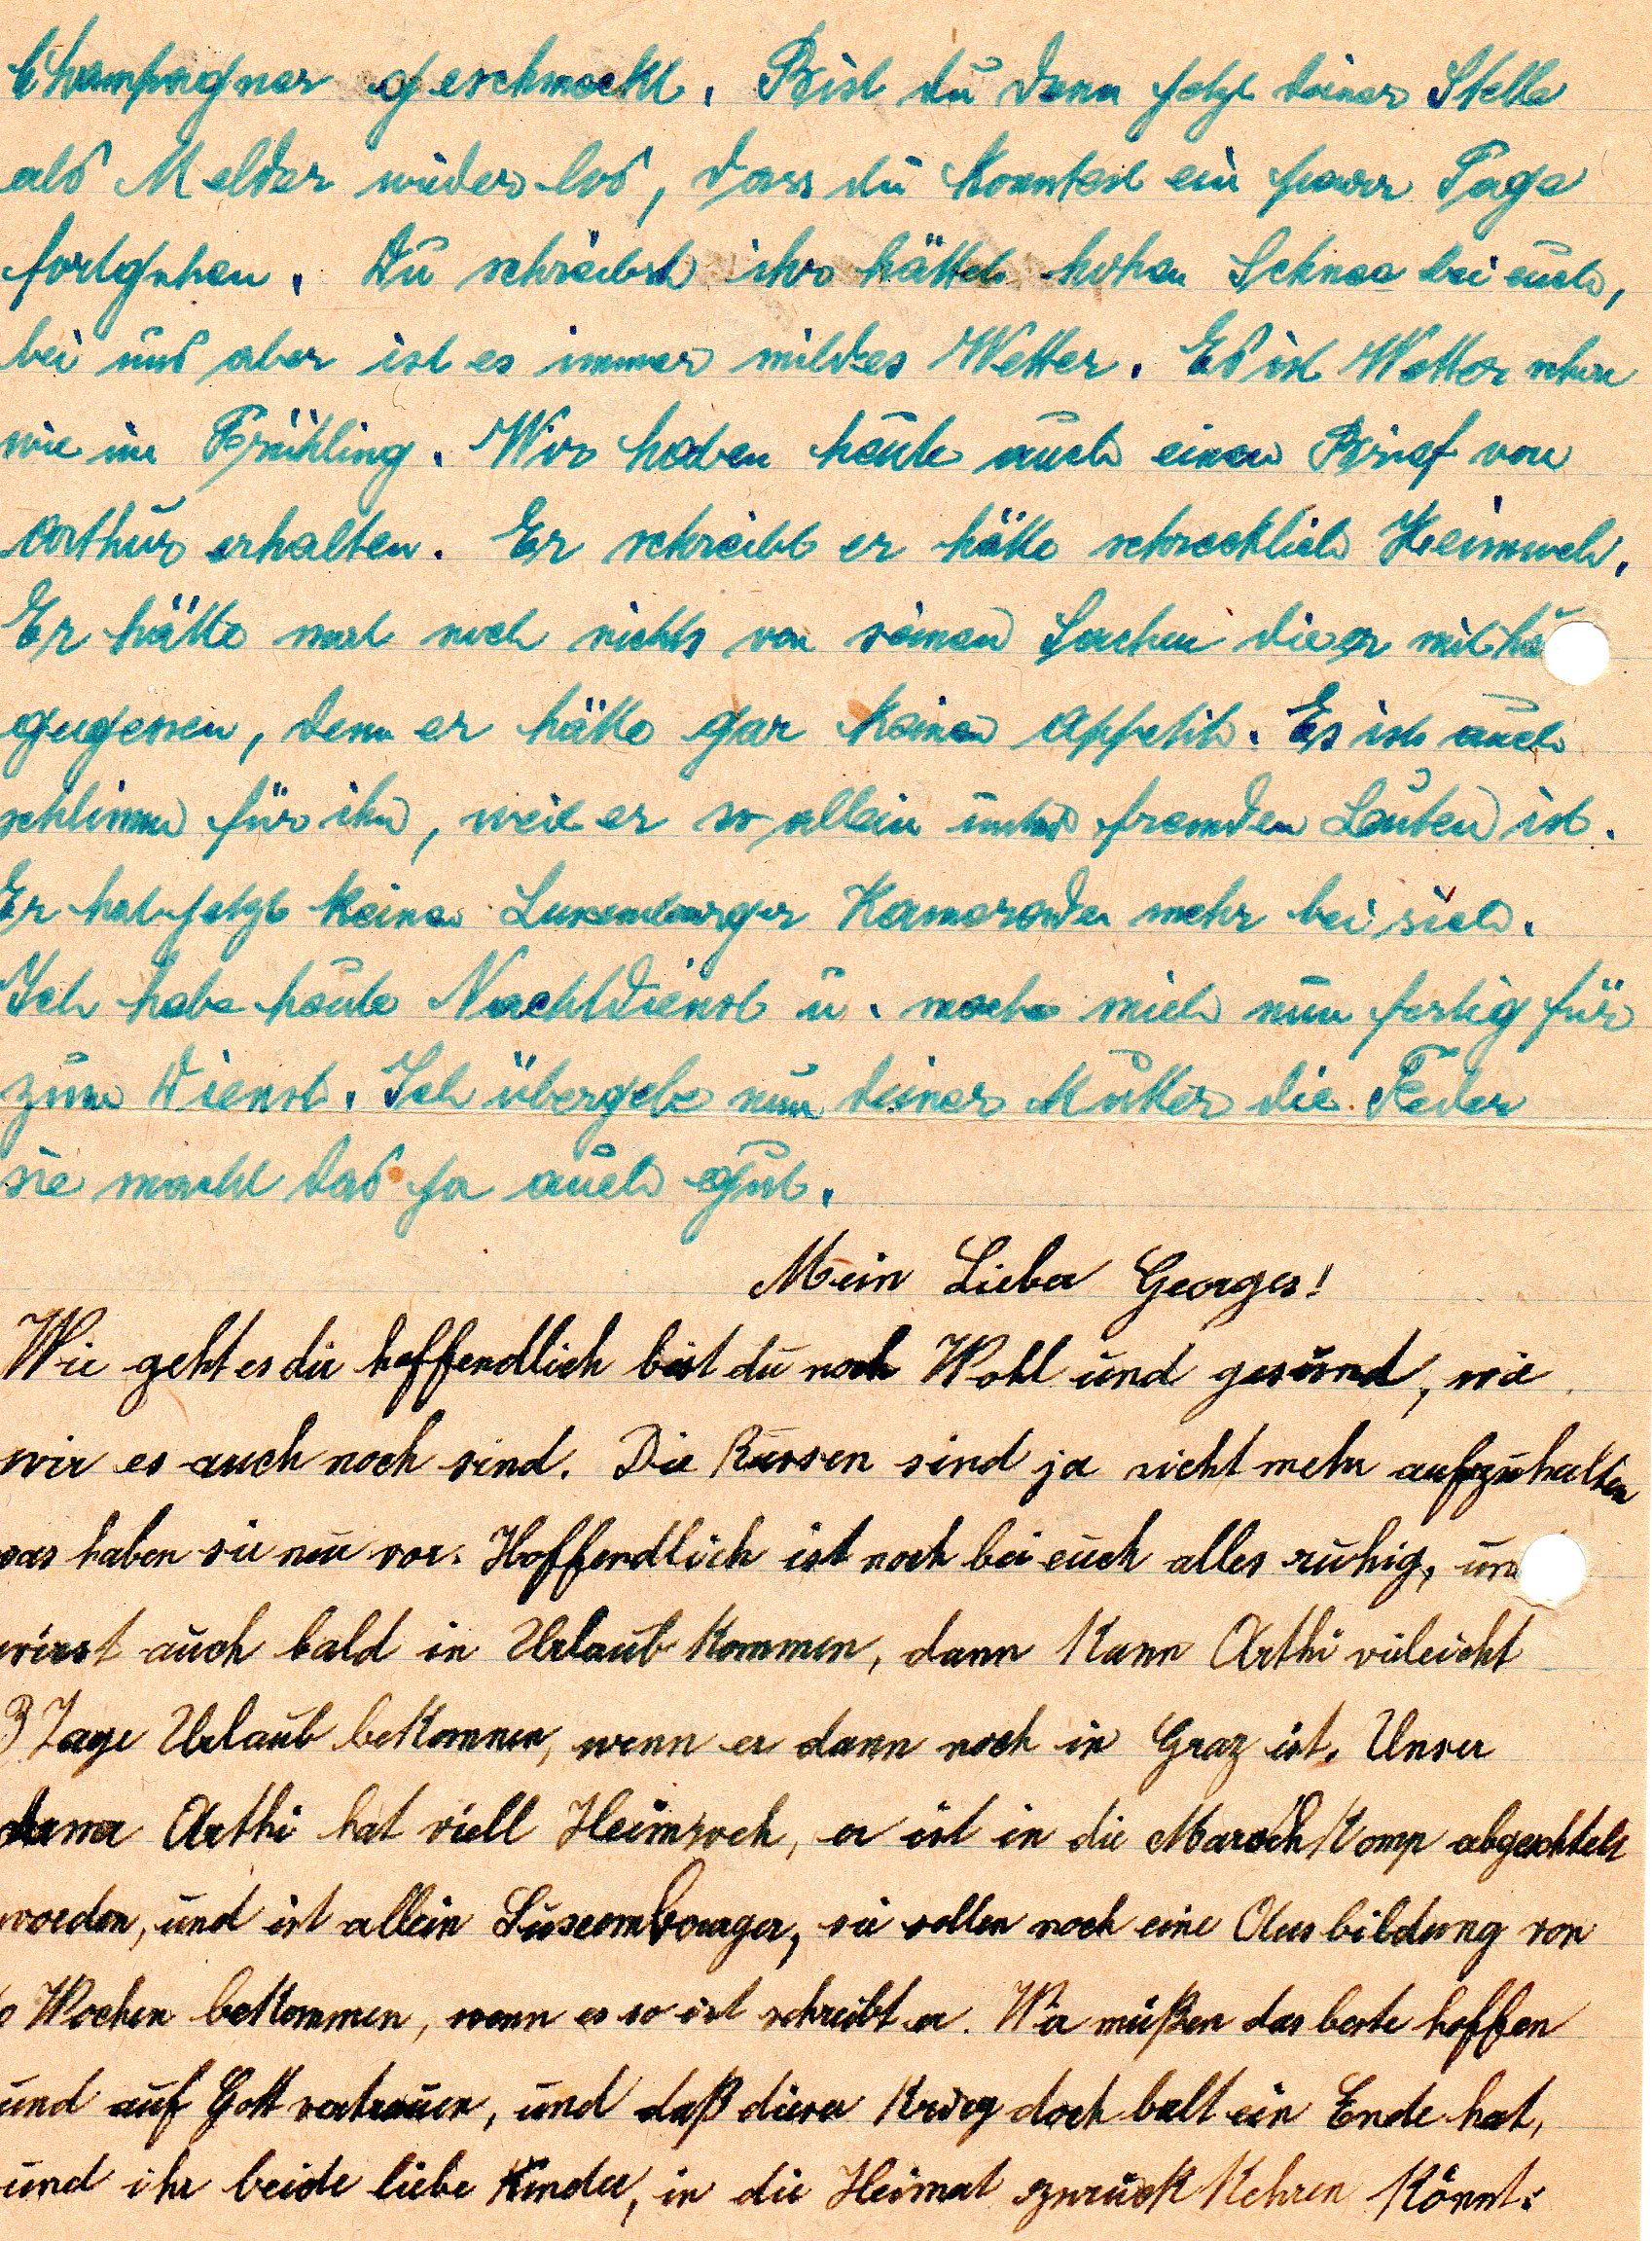 Champagner geschmeckt. Bist du denn jetzt deiner Stelle
als Melder wieder los, dass du konntest ein paar Tage
fortgehen. Du schreibst ihr hättet hohen Schnee bei euch,
bei uns aber ist es immer mildes Wetter. Es ist Wetter schon
wie im Frühling. Wir haben heute auch einen Brief von
Arthur erhalten. Er schreibt er hätte schrecklich Heimweh.
Er hätte noch nichts von seinen Sachen die er mit
gegessen, denn er hätte gar keinen Appetit. Es ist auch
schlimm für ihn, weil er so allein unter fremden Leuten ist.
Er hat jetzt keine Luxemburger Kameraden mehr bei sich.
Ich habe heute Nachtdienst u. mache mich nun fertig für
zum Dienst. Ich übergebe nun deiner Mutter die Feder
sie macht das ja auch gut.
Mein Lieber Georges!
Wie geht es dir hoffendlich bist du noch Wohl und gesund, wie
wir es auch noch sind. Die Russen sind ja nicht mehr aufzuhalten
was haben sie nur vor. Hoffendlich ist noch bei euch alles ruhig,
wirst auch bald in Urlaub kommen, dann kann Arthi vieleicht
3 Tage Urlaub bekommen, wenn er dann noch in Graz ist. Unser
armer Arthi hat viell Heimweh, er ist in die Marsch Komp
worden, und ist allein Luxembourger, sie sollen noch eine Ausbildung von
Wochen bekommen, wenn es so ist schreibt er. Wir müßen das beste hoffen
und auf Gott vertrauen, und daß dieser Krieg doch balt ein Ende hat,
und ihr beide liebe Kinder, in die Heimat zurück kehren könnt.